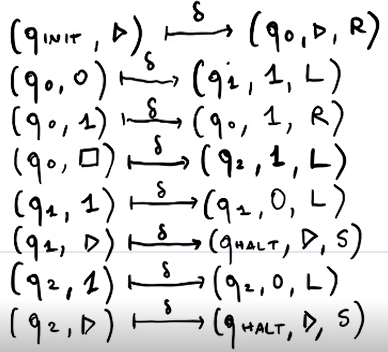 (qINIT, ▷) ↦δ (q0, ▷, R)
(q0, 0) ↦δ (q1, 1, L)
(q0, 1) ↦δ (q0, 1, R)
(q0, □) ↦δ (q2, 1, L)
(q1, 1) ↦δ (q1, 0, L)
(q1, ▷) ↦δ (qHALT, ▷, S)
(q2, 1) ↦δ (q2, 0, L)
(q2, ▷) ↦δ (qHALT, ▷, S)